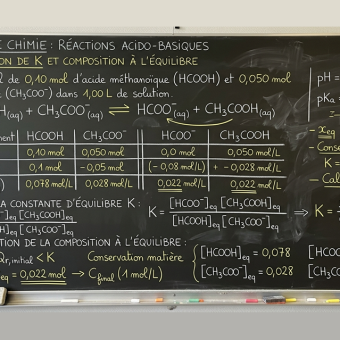 E CHIMIE : RÉACTIONS ACIDO-BASIQUES
ION DE K ET COMPOSITION À L'ÉQUILIBRE
l de 0,10 mol d'acide méthanoïque (HCOOH) et 0,050 mol
(CH₃COO⁻) dans 1,00 L de solution.
H(aq) + CH₃COO⁻(aq) ⇌ HCOO⁻(aq) + CH₃COOH(aq)
ment | HCOOH | CH₃COO⁻ | HCOO⁻ | CH₃COOH
0,10 mol | 0,050 mol | 0,0 mol | 0,050 mol
0,1 mol | -0,05 mol | (-0,08 mol/L) | + -0,028 mol/L
) | 0,078 mol/L | 0,028 mol/L | 0,022 mol/L | 0,022 mol/L
LA CONSTANTE D'ÉQUILIBRE K :
⁻]eq [CH₃COOH]eq
H]eq [CH₃COO⁻]eq
K = [HCOO⁻]eq [CH₃COOH]eq / [HCOOH]eq [CH₃COO⁻]eq ⇒ K =
TION DE LA COMPOSITION À L'ÉQUILIBRE :
Qr,initial < K Conservation matière
eq = 0,022 mol → Cfinal (1 mol/L)
[HCOOH]eq = 0,078
[CH₃COO⁻]eq = 0,028
[HCO
[CH₃C
pH =
pKa =
=
- xeq
- Conse
K =
- Cal